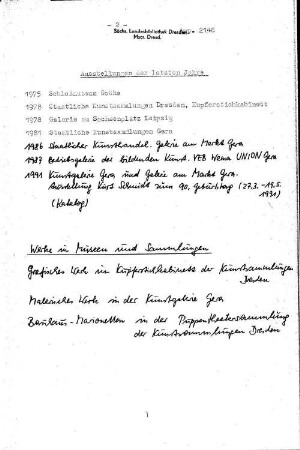 - 2 -
Sächs. Landesbibliothek Dresden
Mscr. Dresd. 2146
Ausstellungen der letzten Jahre
1975 Schloßmuseum Gotha
1978 Staatliche Kunstsammlungen Dresden, Kupferstichkabinett
1978 Galerie am Sachsenplatz Leipzig
1981 Staatliche Kunstsammlungen Gera
1986 Staatlicher Kunsthandel. Galerie am Markt Gera
1987 Betriebsgalerie der bildenden Kunst. VEB Wema UNION Gera
1991 Kunstgalerie Gera und Galerie am Markt Gera.
Ausstellung Kurt Schmidt zum 90. Geburtstag (27.3. - 19.5.
1991)
(Katalog)
Werke in Museen und Sammlungen
Grafisches Werk im Kupferstichkabinett der Kunstsammlungen
Dresden
Malerisches Werke in der Kunstgalerie Gera
Bauhaus-Marionetten in der Puppentheatersammlung
der Kunstsammlungen Dresden